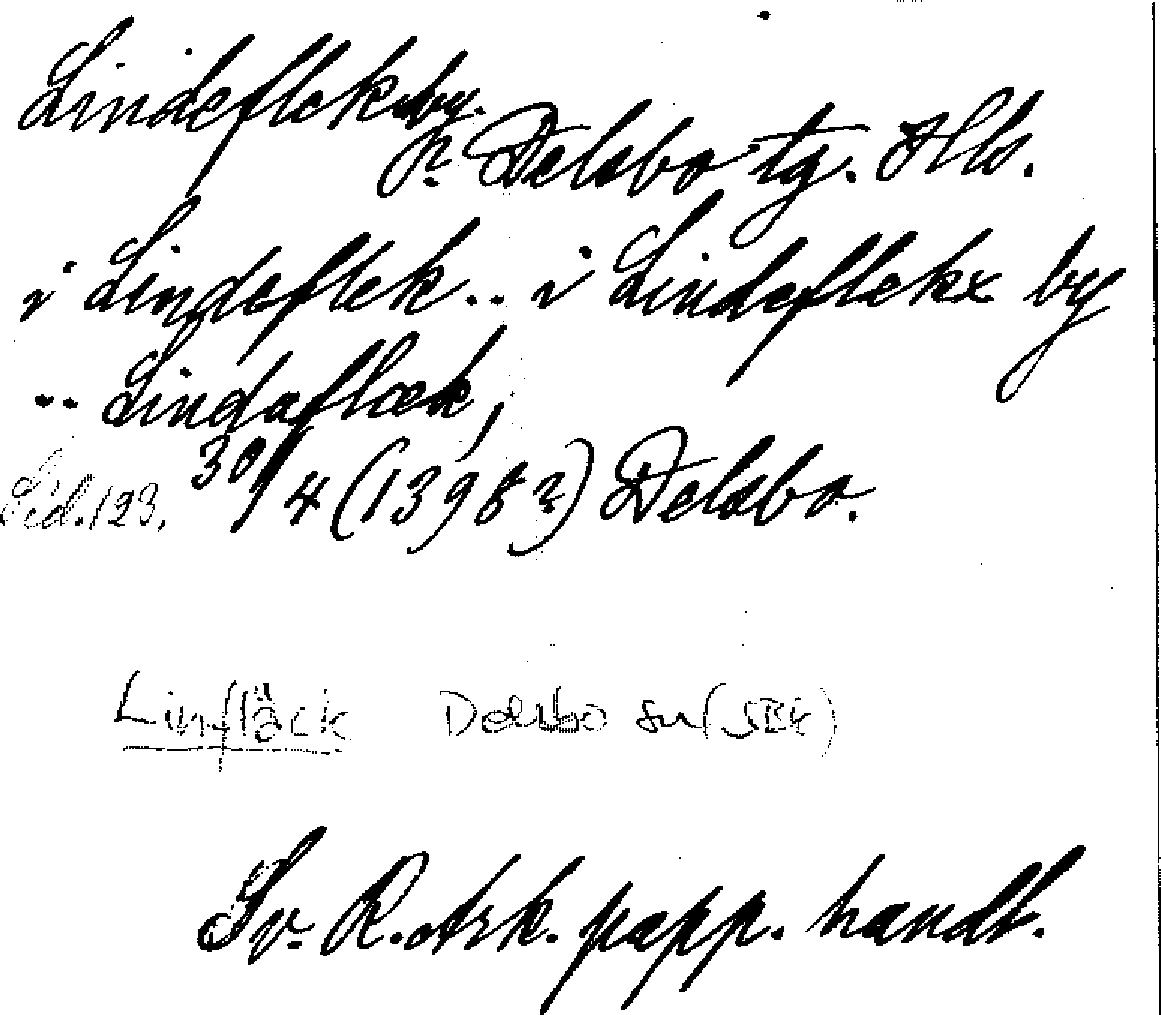 Lindeflek by.
p. Delsbo tg. Hls.
i Lindeflek.. i Lindeflekx by
.. Lindaflæk,
Sid. 123. 30/4 (1398?) Delsbo.
Linfläck Delsbo sn (JEK)
Sv. R. Ark. papp. handl.